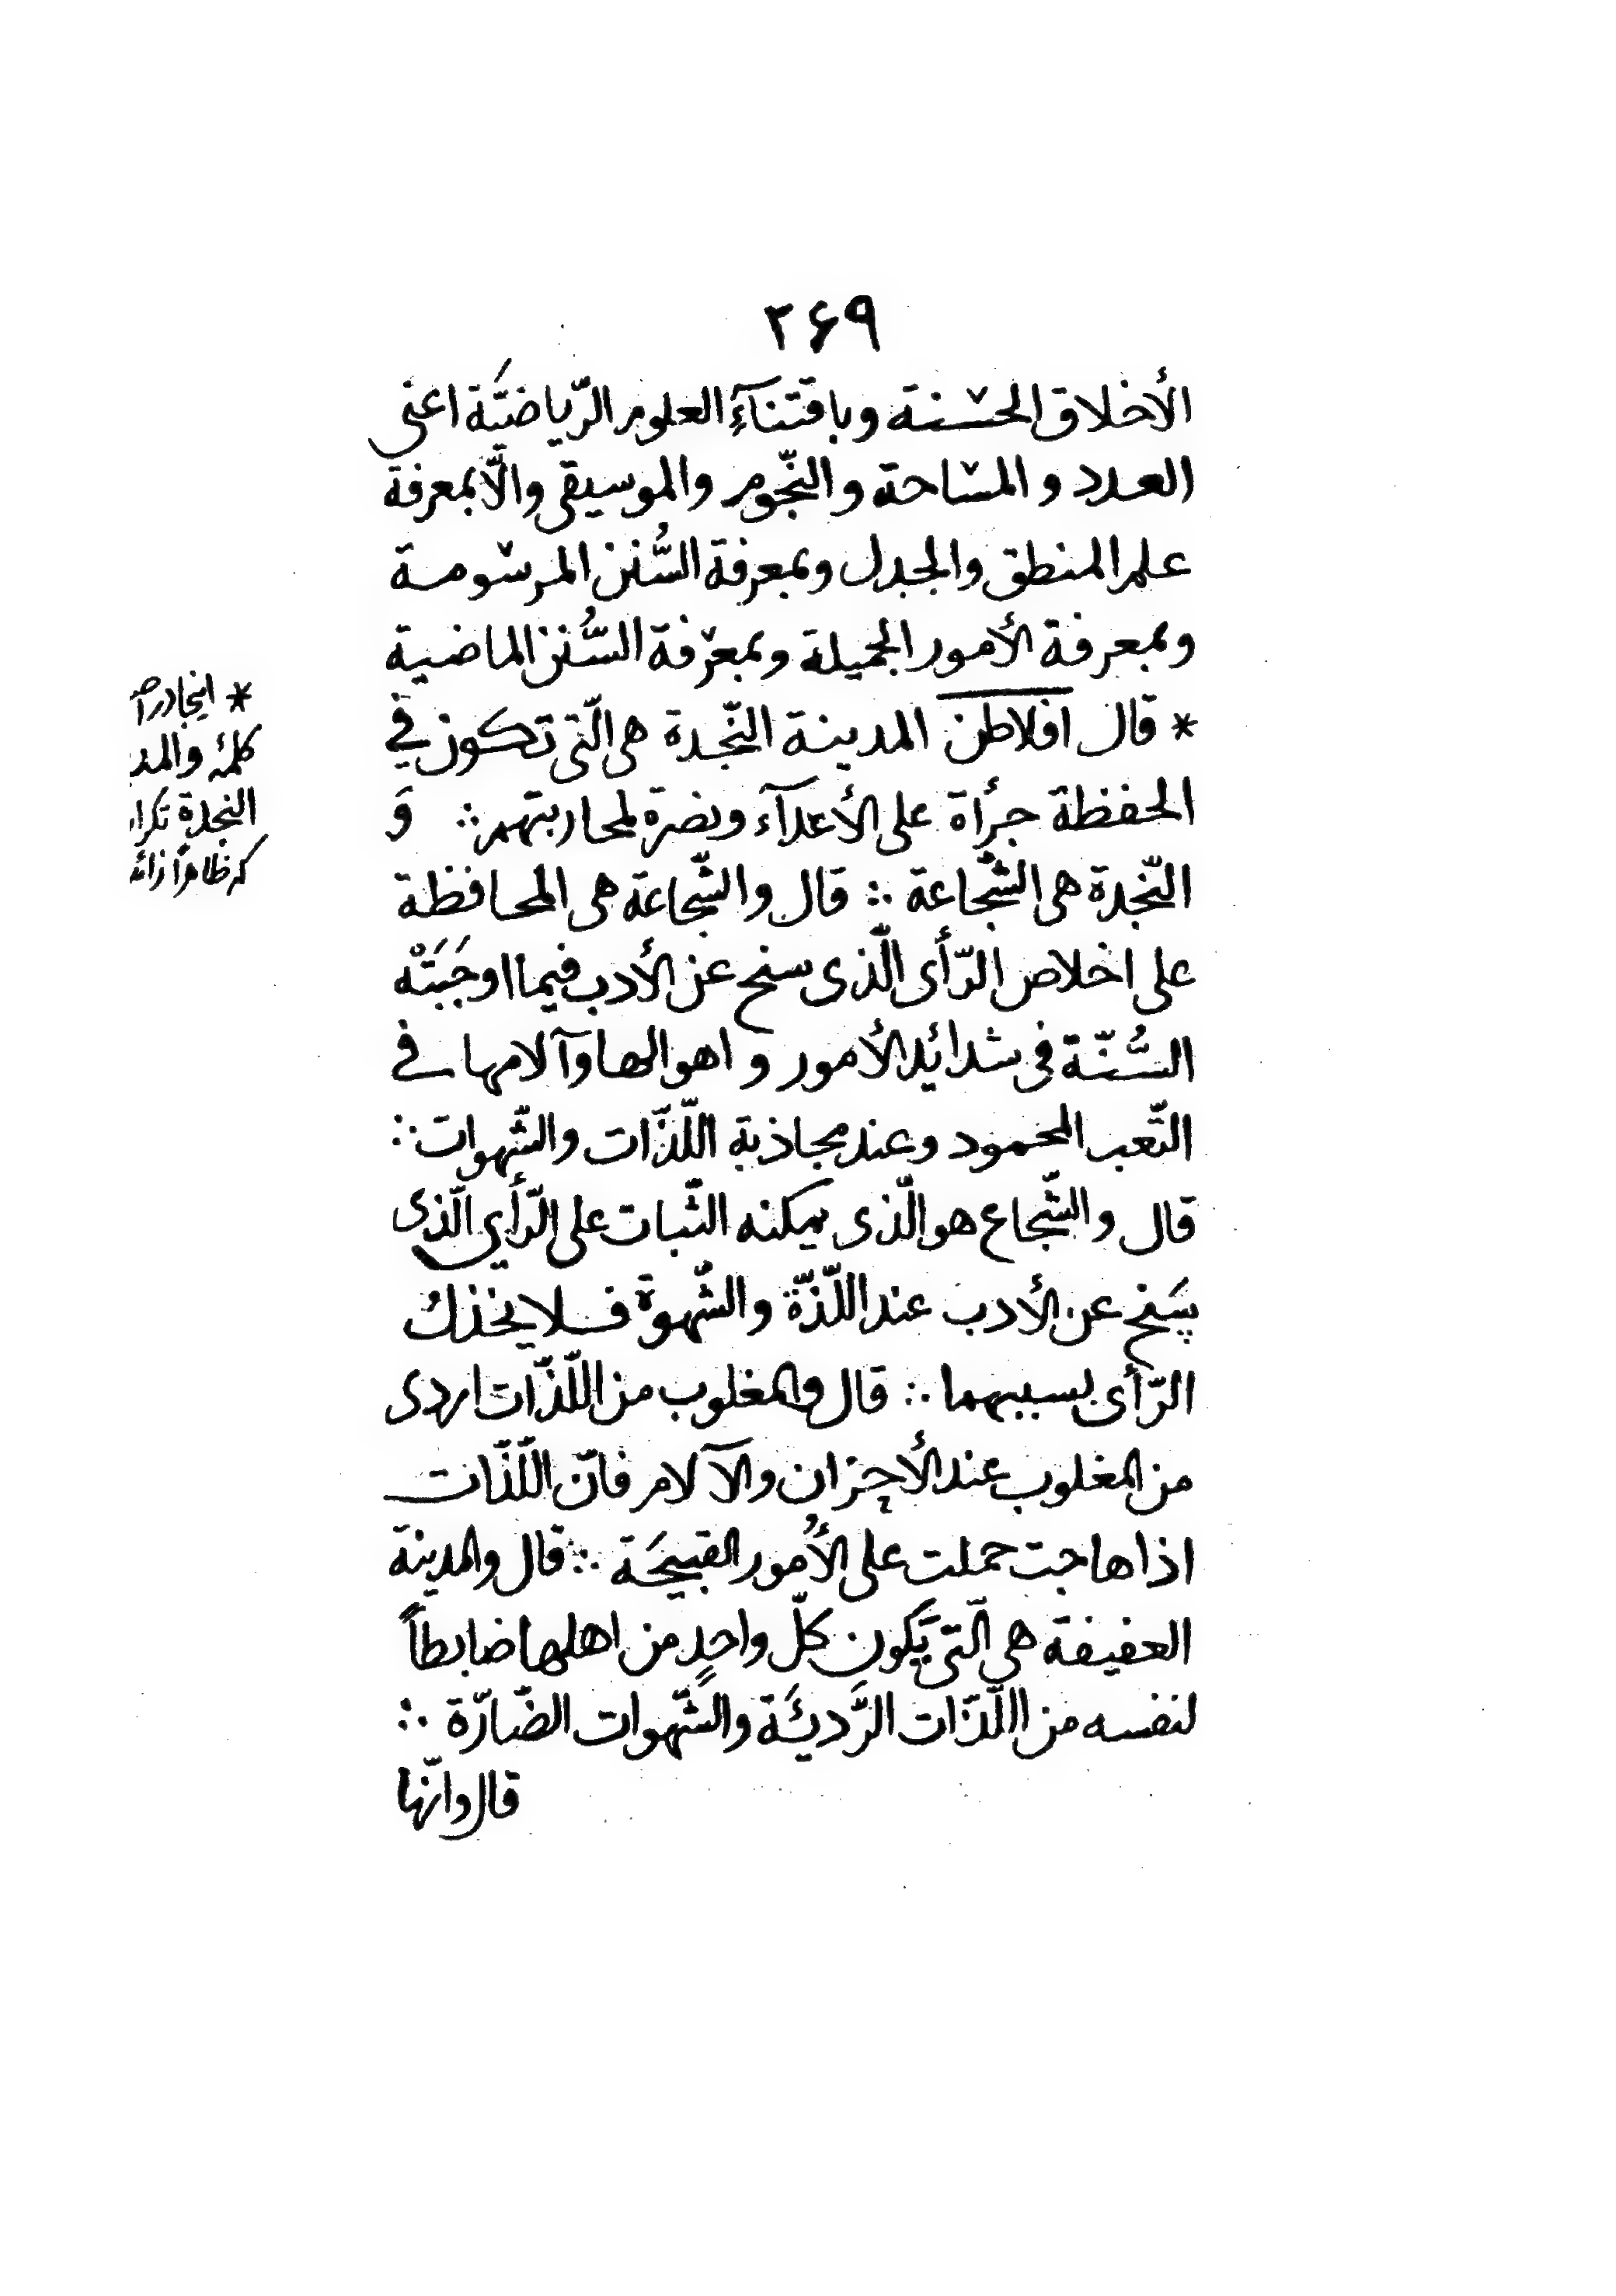 ۲۶۹
الأخلاق الحسنة وباقتنآءِ العلوم الرّياضيَّة اعنى
العدد و المساحة والنّجوم والموسيقى والّا بمعرفة
علم المنطق والجدل وبمعرفة السُّنن المرسومة
وبمعرفة الأمور الجميلة وبمعرفة السُّنن الماضية
* قال افلاطن المدينة النّجدة هى الّتى تكون في
الحفظة جرأة على الأعدآء ونصرة لمحاربتهم ∴ وَ
النّجدة هى الشّجاعة ∴ قال والشّجاعة هى المحافظة
على اخلاص الرّأى الّذى سنح عن الأدب فيما اوجَبَتْه
السُّنّة فى شدائد الأمور و اهوالها وآلامها في
التّعب المحمود وعند مجاذبة اللّذّات والشّهوات ∴
قال والشّجاع هو الّذى يمكنه الثّبات على الرّأي الّذى
يسَنح عن الأدب عند اللّذّة والشّهوة فلا يخذلُ
الرّأى بسببهما ∴ قال والمغلوب من اللّذّات اردى
من المغلوب عند الأحزان والآلام فانّ اللّذّات
اذا هاجت حملت على الأُمور القبيحَة ∴ قال والمدينة
العفيفة هى الّتى يَكون كلّ واحدٍ من اهلها ضابطاً
لنفسه من اللّذّات الرَّديئَة والشّهوات الضّارّة ∴
قال وانّها
* اينجا در
كلمهٔ والمد
النجدة تكرا
كه ظاهراً زائد